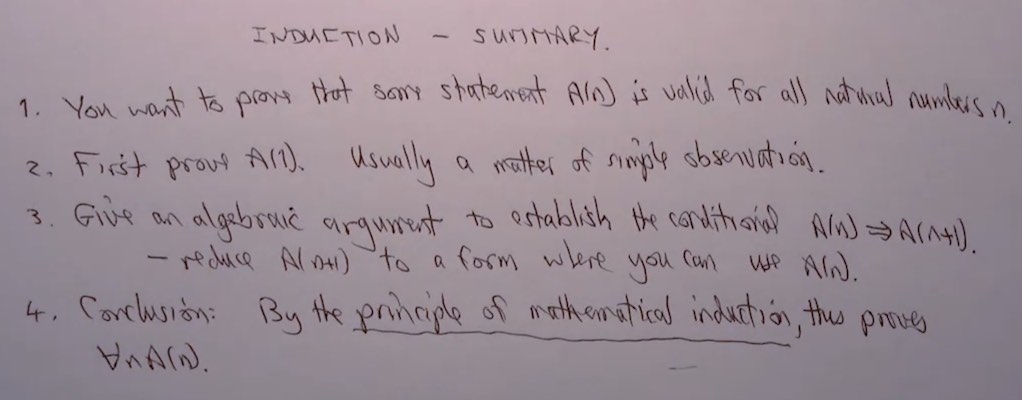 INDUCTION - SUMMARY.
1. You want to prove that some statement A(n) is valid for all natural numbers n.
2. First prove A(1). Usually a matter of simple observation.
3. Give an algebraic argument to establish the conditional A(n) ⇒ A(n+1).
- reduce A(n+1) to a form where you can use A(n).
4. Conclusion: By the principle of mathematical induction, this proves
∀n A(n).